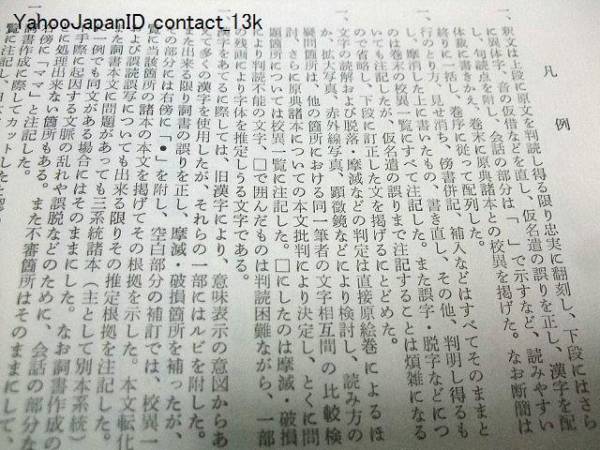 YahooJapanID contact_13k
凡例
一、釈文は上段に原文を判読し得る限り忠実に翻刻し、下段にはさら
に字体、音の仮借などを直し、仮名遣の誤りを正し、漢字を配
し、句読点を附し、会話の部分は「 」で示すなど、読みやすい
体裁に書きかえ、巻末に原典諸本との校異を掲げた。なお断簡は
終りに一括し、巻序に従って配列した。
一、行のとり方、見せ消ち、傍書併記、補入などはすべてそのままと
し、摩消した上に書いたもの、書き直し、その他、判明し得るも
のは巻末の校異一覧にすべて注記した。また誤字・脱字などにつ
いても注記したが、仮名遣の誤りまで注記することは煩雑になる
ので省略し、下段に訂正した文を掲げるにとどめた。
一、文字の読解および脱落・摩滅などの判定は直接原絵巻によるほ
か、拡大写真、赤外線写真、顕微鏡などにより検討し、読み方の
疑問箇所は、他の箇所における同一筆者の文字相互間の比較検
討、さらに原典諸本についての本文批判により決定し、とくに問
題箇所については校異一覧に注記した。□にしたのは摩滅・破損
により判読不能の文字、□で囲んだものは判読困難ながら、一部
の残画により字体を推定しうる文字である。
一、漢字をあてるに際しては、旧漢字により、意味表示の意図からあ
えて多くの漢字を使用したが、それらの一部にはルビを附した。
また出来る限り詞書の誤りを正し、摩滅・破損箇所を補ったが、
の部分には右傍に「•」を附し、空白部分の補訂では、校異一
覧に当該箇所の諸本の本文を掲げてその根拠を示した。本文転化
および誤読誤写についても出来る限りその推定根拠を注記した。
また詞書本文に問題があっても三系統諸本（主として別本系統）
一例でも同文がある場合にはそのままにした。なお詞書作成の
手際に起因する文脈の乱れや誤脱などのために、会話の部分な
に処理出来ない箇所もある。また不審箇所はそのままにして、
右傍に「ママ」と注記した。